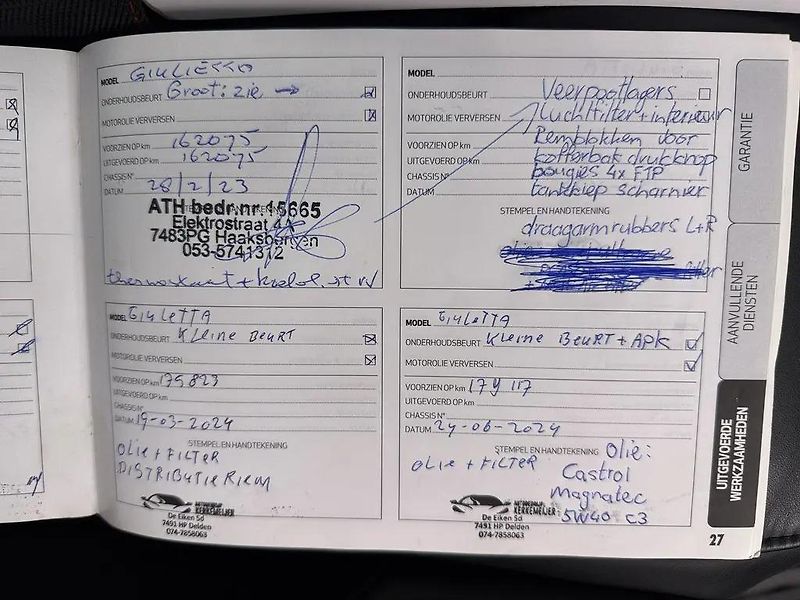 MODEL GIULIETTA
ONDERHOUDSBEURT Groot: zie →
MOTOROLIE VERVERSEN
VOORZIEN OP km 162075
UITGEVOERD OP km 162075
CHASSIS N°
DATUM 28/2/23
STEMPEL EN HANDTEKENING
ATH bedr nr 15665
Elektrostraat 4A
7483PG Haaksbergen
053-5741312
MODEL
ONDERHOUDSBEURT Veerpootlagers
MOTOROLIE VERVERSEN Luchtfilter + interieur
VOORZIEN OP km Remblokken voor
UITGEVOERD OP km kofferbak drukknop
CHASSIS N° bougies 4x FTP
DATUM tankklep scharnier
STEMPEL EN HANDTEKENING
draagarmrubbers L+R
MODEL GIULETTA
ONDERHOUDSBEURT KLEINE BEURT
MOTOROLIE VERVERSEN
VOORZIEN OP km 175823
UITGEVOERD OP km
CHASSIS N°
DATUM 19-03-2024
STEMPEL EN HANDTEKENING
OLIE + FILTER
DISTRIBUTIE RIEM
AUTOBEDRIJF
KERKEMEIJER
De Eiken 5d
7491 HP Delden
074-7858063
MODEL GIULETTA
ONDERHOUDSBEURT KLEINE BEURT + APK
MOTOROLIE VERVERSEN
VOORZIEN OP km 179117
UITGEVOERD OP km
CHASSIS N°
DATUM 24-06-2024
STEMPEL EN HANDTEKENING Olie:
OLIE + FILTER Castrol
Magnatec
5W40 C3
AUTOBEDRIJF
KERKEMEIJER
De Eiken 5d
7491 HP Delden
074-7858063
GARANTIE
AANVULLENDE
DIENSTEN
UITGEVOERDE
WERKZAAMHEDEN
27